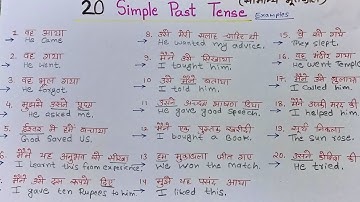 20 Simple Past Tense (सामान्य भूतकाल)
Examples
1. वह आया
He came
2. वह गया
He went
3. वह भूल गया
He forgot.
4. मुझसे उसने पूछा
He asked me.
5. ईश्वर ने हमें बचाया
God saved us.
6. मैंने यह अनुभव से सीखा
I learnt this from experience.
मैंने उसे दस रूपये दिए
I gave ten Rupees to him.
8. उसने मेरी सलाह चाही थी
He wanted my advice.
9. मैंने उसे सिखाया
I taught him.
10. उसे मैंने बताया
I told him.
11. उसने अच्छा भाषण दिया
He gave good Speech.
12. मैंने एक पुस्तक खरीदी
I bought a Book.
13. हम मुकाबला जीत गए
We won the match.
14. मुझे यह पसंद आया
I liked this.
15. वे सो गये
They slept.
16. वह मंदिर गया
He went Temple
17. मैंने उसे बुलाया
I called him
18. मैंने उसकी मदद की
I helped him
19. सूर्य निकला
The sun rose.
20. उसने कोशिश की
He tried.